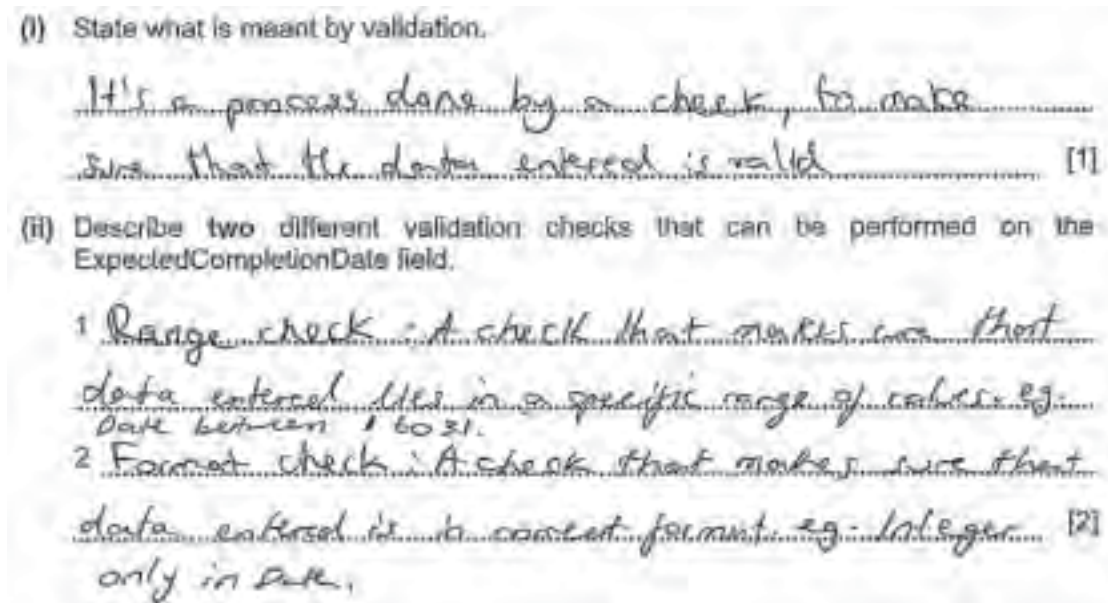 (i) State what is meant by validation.
It's a process done by a check, to make
sure that the data entered is valid [1]
(ii) Describe two different validation checks that can be performed on the
ExpectedCompletionDate field.
1 Range check : A check that makes sure that
data entered lies in a specific range of values. eg.
Date between 1 to 31.
2 Format check : A check that makes sure that
data entered is in correct format. eg. Integer [2]
only in Date.